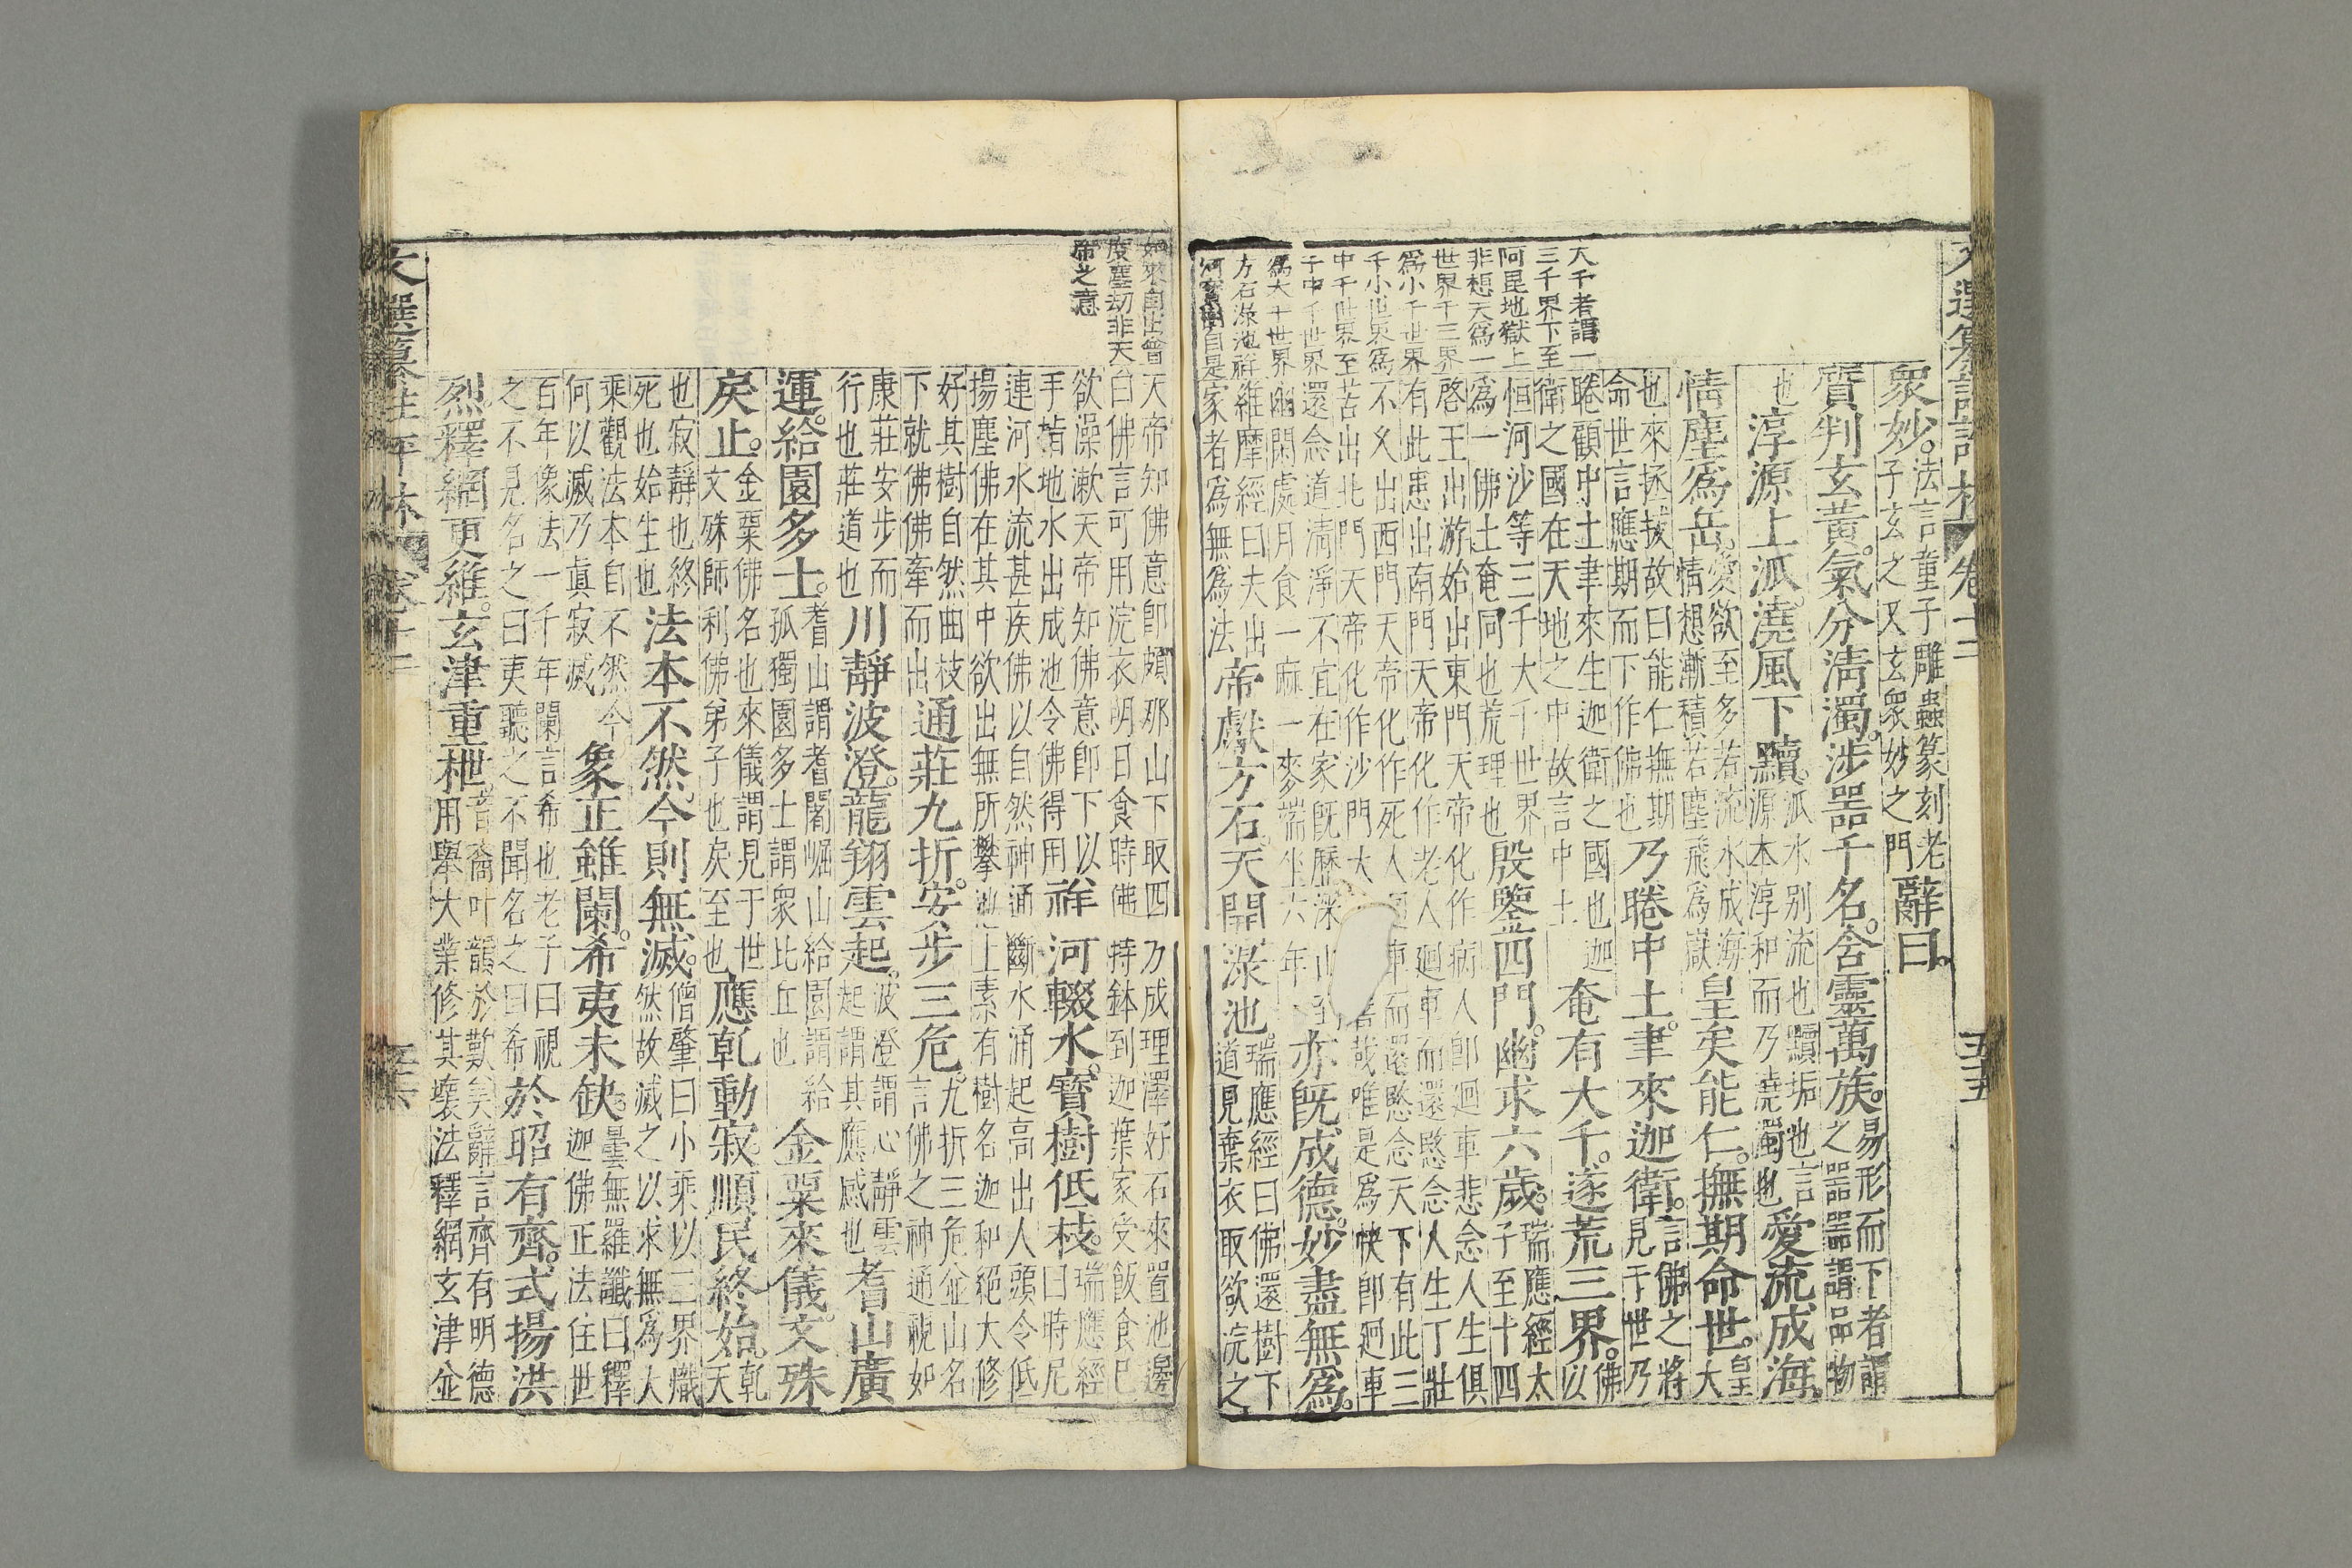 文選纂註評林 卷十二 五十五
大千者謂一
三千界下至
阿毘地獄上
非想天爲一
世界千三界
爲小千世界
千小世界爲
中千世界至
千中千世界
爲大千世界
方石渌池祥
河寶樹自是
衆妙。法言童子雕蟲篆刻老子玄之又玄衆妙之門辭曰。
質判玄黃。氣分淸濁。涉器千名。含靈萬族。易形而下者謂之器器謂品物
也淳源上派。澆風下黷。派水別流也黷垢也言源本淳和而乃澆濁也愛流成海。
情塵爲岳。愛欲至多若流水成海情想漸積若塵飛爲嶽皇矣能仁。撫期命世。皇大
也來拯拔故曰能仁撫期命世言應期而下作佛也乃睠中土。聿來迦衛。言佛之將見于世乃
睠顧中土聿來生迦衛之國也迦衛之國在天地之中故言中土奄有大千。遂荒三界。佛以
恒河沙等三千大千世界爲一佛土奄同也荒理也殷鑒四門。幽求六歲。瑞應經太子至十四
啓王出游始出東門天帝化作病人卽迴車悲念人生俱有此患出南門天帝化作老人迴車而還愍念人生丁壯
不久出西門天帝化作死人迴車而還愍念天下有此三苦出北門天帝化作沙門大善哉唯是爲快卽迴車
還念道淸淨不宜在家旣歷深山至幽閑處月食一麻一麥端坐六年亦旣成德。妙盡無爲。
維摩經曰夫出家者爲無爲法帝獻方石。天開渌池瑞應經曰佛還樹下道見棄衣取欲浣之
如來自止會
度塵劫非天
帝之意
天帝知佛意卽頗那山下取四乃成理澤好石來置池邊白佛言可用浣衣明日食時佛持鉢到迦葉家受飯食已
欲澡漱天帝知佛意卽下以手指地水出成池令佛得用祥河輟水。寶樹低枝。瑞應經曰時尼
連河水流甚疾佛以自然神通斷水涌起高出人頭令低揚塵佛在其中欲出無所攀池上素有樹名迦和絕大修
好其樹自然曲枝下就佛佛牽而出通莊九折。安步三危。九折三危並山名言佛之神通視如
康莊安步而行也莊道也川靜波澄。龍翔雲起。波澄謂心靜雲起謂其應感也耆山廣
運。給園多士。耆山謂耆闍崛山給園謂給孤獨園多士謂衆比丘也金粟來儀。文殊
戾止。金粟佛名也來儀謂見于世文殊師利佛弟子也戾至也應乾動寂。順民終始。乾天
也寂靜也終死也始生也法本不然。今則無滅。僧肇曰小乘以三界熾然故滅之以求無爲大
乘觀法本自不然今何以滅乃眞寂滅象正雖闌。希夷未缺。曇無羅讖曰釋迦佛正法住世
百年像法一千年闌言希也老子曰視之不見名之曰夷聽之不聞名之曰希於昭有齊。式揚洪
烈。釋網更維。玄津重枻。音裔叶韻於歎矣辭言齊有明德用舉大業修其壞法釋網玄津並
文選纂註評林 卷十二 五十六